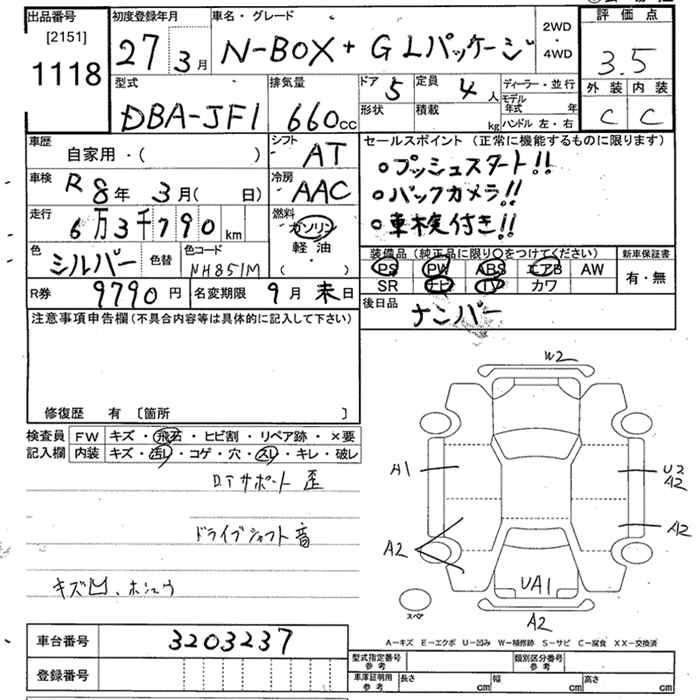 出品番号
[2151]
1118
初度登録年月
27 3月
車名・グレード
N-BOX+ G Lパッケージ
2WD
・
4WD
評価点
3.5
外装 内装
C C
型式
DBA-JF1
排気量
660cc
ドア 5
定員 4人
形状 積載 kg
ディーラー・並行
モデル年式 年
ハンドル 左・右
車歴
自家用・( )
シフト
AT
車検 R8年 3月( 日)
冷房
AAC
走行 6万3千790km
燃料
ガソリン
軽・油
( )
色 シルバー 色替
色コード
NH851M
R券 9790円
名変期限 9月末日
セールスポイント(正常に機能するものに限ります)
○プッシュスタート!!
○バックカメラ!!
○車検付き!!
装備品(純正品に限り○をつけてください)
PS PW ABS エアB AW
SR ナビ TV カワ
新車保証書
有・無
後日品
ナンバー
注意事項申告欄(不具合内容等は具体的に記入して下さい)
修復歴 有 [箇所 ]
検査員記入欄
FW キズ・飛石・ヒビ割・リペア跡・×要
内装 キズ・汚レ・コゲ・穴・スレ・キレ・破レ
D.Tサポート 歪
ドライブシャフト音
キズ凹、ホシュウ
W2
A1
U2
A2
A2
A2
UA1
スペア
A2
A-キズ E-エクボ U-凹み W-補修跡 S-サビ C-腐食 XX-交換済
車台番号 3203237
登録番号
型式指定番号
参考
類別区分番号
参考
車庫証明用
参考
長さ cm 幅 cm 高さ cm